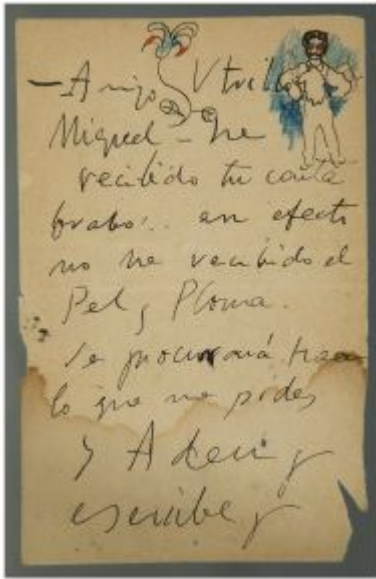 —Amigo Utrillo
Miguel — he
recibido tu carta
brabo!.. en efecto
no he recibido el
Pel y Ploma.
Se procurará hacer
lo que me pides
y Adeu y
escribe y